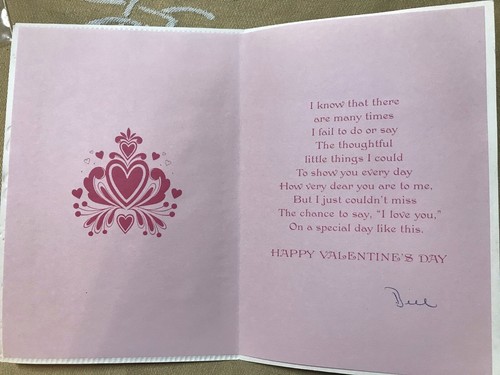 I know that there
are many times
I fail to do or say
The thoughtful
little things I could
To show you every day
How very dear you are to me,
But I just couldn't miss
The chance to say, "I love you,"
On a special day like this.
HAPPY VALENTINE'S DAY
Bill